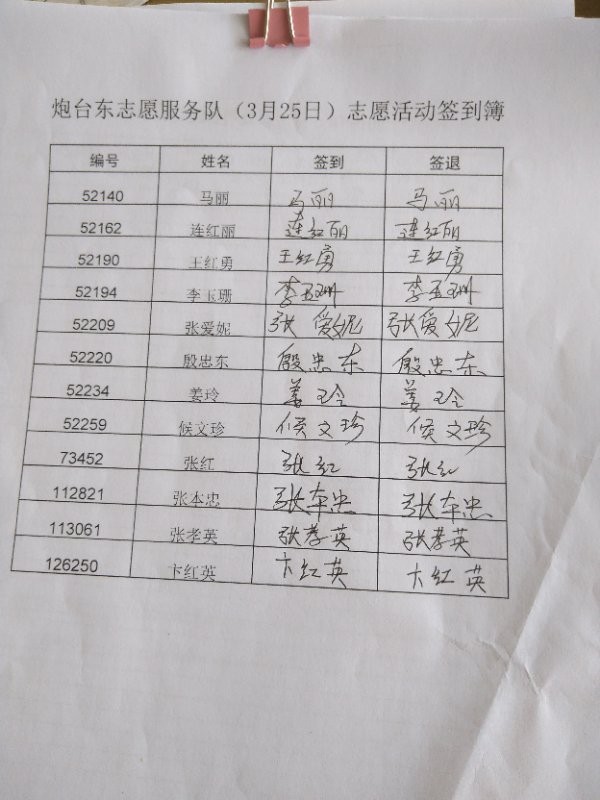 炮台东志愿服务队（3月25日）志愿活动签到簿
编号 姓名 签到 签退
52140 马丽 马丽 马丽
52162 连红丽 连红丽 连红丽
52190 王红勇 王红勇 王红勇
52194 李玉珊 李玉珊 李玉珊
52209 张爱妮 张爱妮 张爱妮
52220 殷忠东 殷忠东 殷忠东
52234 姜玲 姜玲 姜玲
52259 候文珍 候文珍 候文珍
73452 张红 张红 张红
112821 张本忠 张本忠 张本忠
113061 张孝英 张孝英 张孝英
126250 卞红英 卞红英 卞红英